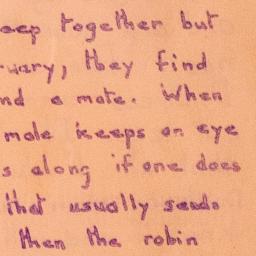 eep together but
ruary, they find
nd a mate. When
male keeps an eye
s along if one does
that usually sends
then the robin